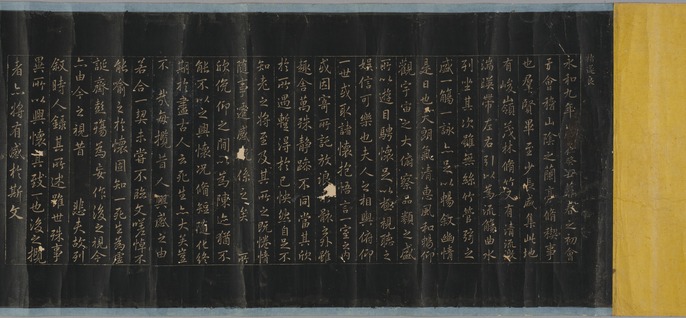 永和九年癸丑暮春之初會
于會稽山陰之蘭亭脩禊事
也羣賢畢至少長咸集此地
有峻嶺茂林脩竹又有清流激
湍帶左右引以為流觴曲水
列坐其次雖無絲竹管弦之
盛一觴一詠亦足以暢敘幽情
是日也天朗氣清惠風和暢仰
觀宇宙之大俯察品類之盛
所以遊目騁懷足以極視聽之
娛信可樂也夫人之相與俯仰
一世或取諸懷抱悟言一室之內
或因寄所託放浪形骸之外雖
趣舍萬殊靜躁不同當其欣
於所遇暫得於己快然自足不
知老之將至及其所之既惓情
隨事遷感係之矣所
欣俛仰之間以為陳迹猶不
能不以之興懷況脩短隨化終
期於盡古人云死生亦大矣豈
不哉每攬昔人興感之由
若合一契未嘗不臨文嗟悼不
能喻之於懷固知一死生為虛
誕齊彭殤為妄作後之視今
亦由今之視昔悲夫故列
敘時人錄其所述雖世殊事
異所以興懷致一也後之攬
者亦將有感於斯文